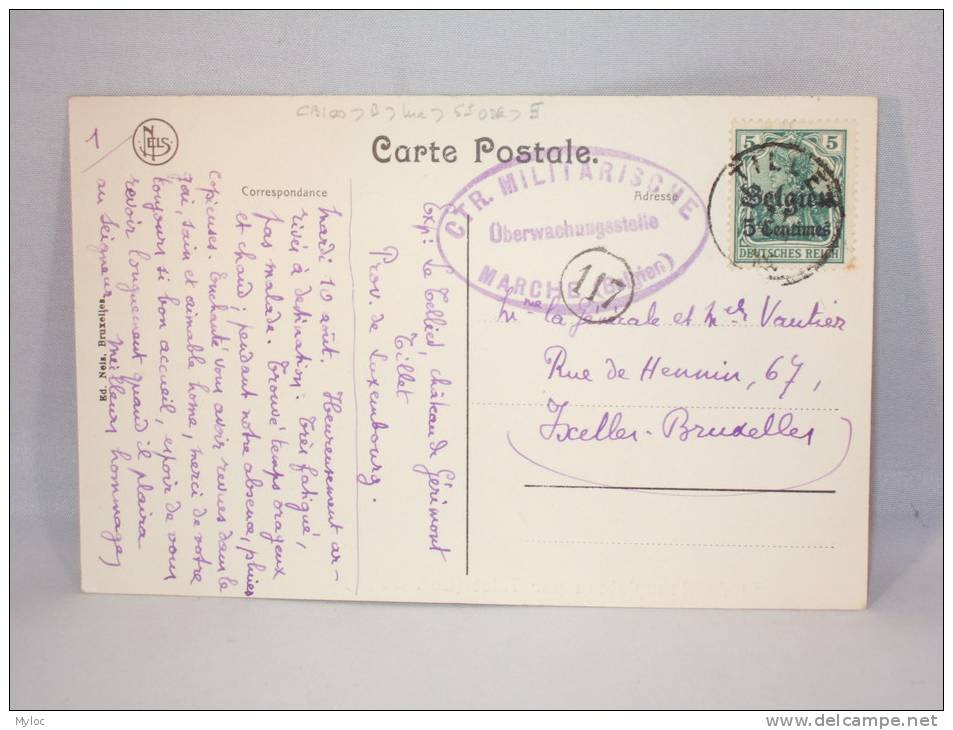 1
NELS
Carte Postale.
Correspondance
Adresse
CTR. MILITÄRISCHE
Überwachungsstelle
MARCHE (Belgien)
117
TILLET
5 5
Belgien
5 Centimes
DEUTSCHES REICH
Mardi 10 août. Heureusement ar-
rivés à destination. Très fatigué,
pas malade. Trouvé temps orageux
et chaud; pendant notre absence, pluies
copieuses. Enchanté vous avoir revues dans le
gai, sain et aimable home, merci de votre
toujours si bon accueil, espoir de vous
revoir longuement quand il plaira
au Seigneur. Meilleurs hommages
Exp: Le Tellier, château de Gérimont
Tillet
Prov. de Luxembourg.
Mme la générale et Mes Vautier
Rue de Hennin, 67,
Ixelles-Bruxelles
Ed. Nels, Bruxelles
Myloc
delcampe.net